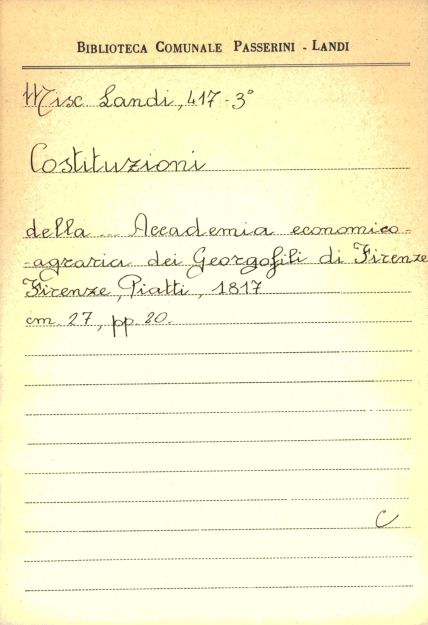 BIBLIOTECA COMUNALE PASSERINI - LANDI
Misc Landi, 417-3°
Costituzioni
della ... Accademia economico-
-agraria dei Georgofili di Firenze
Firenze, Piatti, 1817
cm. 27, pp. 20.
C